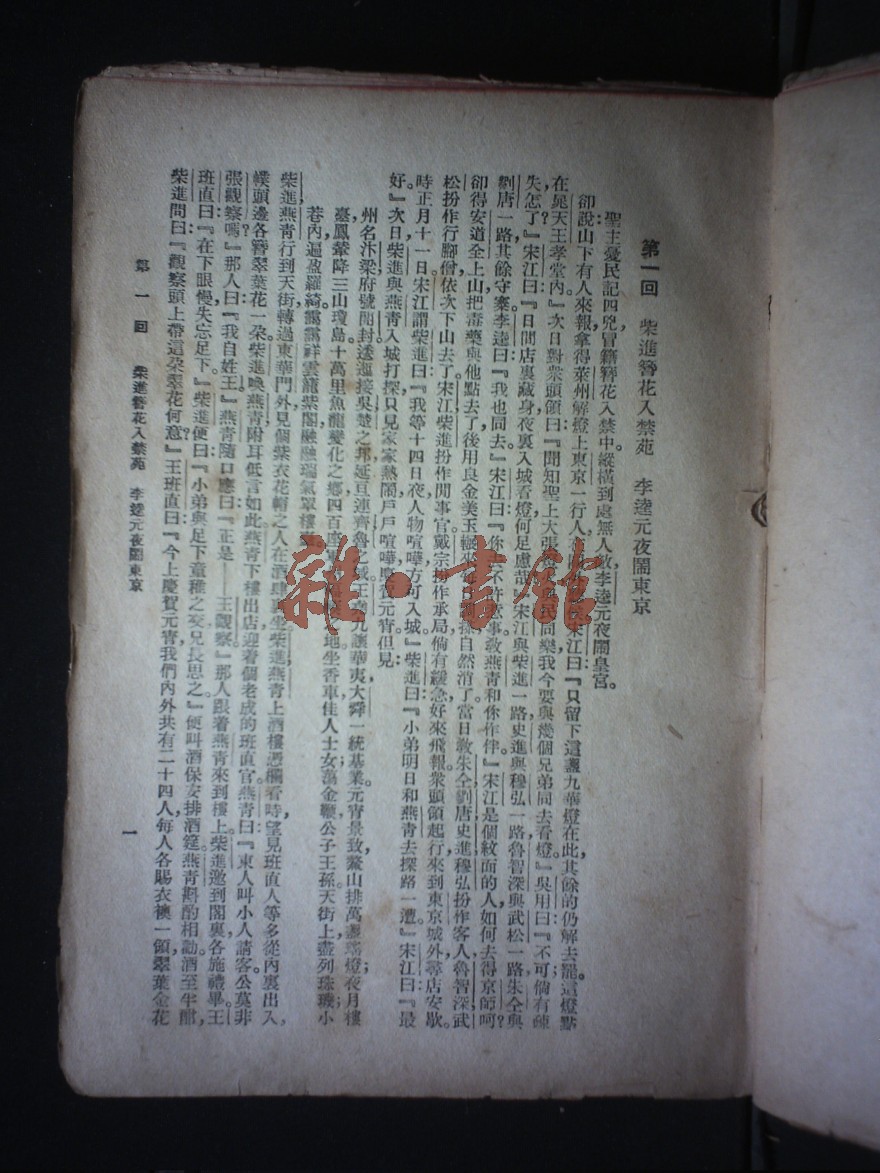 第一回　柴進簪花入禁苑　李逵元夜鬧東京
聖主憂民記四兇，冒籍簪花入禁中。縱橫到處無人敵，李逵元夜鬧皇宮。
卻說山下有人來報，拿得萊州解燈上東京一行人，在 宋江曰：『只留下這盞九華燈在此，其餘的仍解去罷。』這燈點
在晁天王孝堂內。次日，對衆頭領曰：『聞知聖上大張 民同樂，我今要與幾個兄弟同去看燈。』吳用曰：『不可，倘有疎
失怎了？』宋江曰：『日間店裏藏身，夜裏入城看燈，何足慮哉？』宋江與柴進一路，史進與穆弘一路，魯智深與武松一路，朱仝與
劉唐一路，其餘守寨。李逵曰：『我也同去。』宋江曰：『你 不許惹事，敎燕青和你作伴。』宋江是個紋面的人，如何去得京師？呵
卻得安道全上山，把毒藥與他點去了，後用良金美玉 自然消了。當日敎朱仝劉唐史進穆弘扮作客人，魯智深武
松扮作行腳僧，依次下山去了。宋江柴進扮作閒事官，戴宗扮作承局，倘有緩急，好來飛報。衆頭領起行，來到東京城外尋店安歇。
時正月十一日，宋江謂柴進曰：『我等十四日夜，人物喧嘩，方可入城。』柴進曰：『小弟明日和燕青去探路一遭。』宋江曰：『最
好。』次日，柴進與燕青入城打探，只見家家熱鬧，戶戶喧嘩，慶賀元宵。但見：
州名汴梁，府號開封。逶迤接吳楚之邦，延亘連齊魯之 王 九讓華夷，大舜一統基業。元宵景致，鰲山排萬盞 燈；夜月樓
臺，鳳輦降三山瓊島。十萬里魚龍變化之鄉，四百座 地。坐香車佳人士女，蕩金鞭公子王孫。天街上盡列珠璣，小
巷內遍盈羅綺。靄靄祥雲龍紫閣，融融瑞氣罩樓
柴進燕青行到天街，轉過東華門外，見個紫衣花帽之人在酒肆裏坐。柴進燕青上酒樓，憑欄看時，望見班直人等多從內裏出入，
幞頭邊各簪翠葉花一朶。柴進喚燕青附耳低言如此。燕青下樓出店，迎着個老成的班直官，燕青曰：『東人叫小人請客，公莫非
張觀察嗎？』那人曰：『我自姓王。』燕青隨口應曰：『正是——王觀察。』那人跟着燕青來到樓上，柴進邀到閣裏，各施禮畢。王
班直曰：『在下眼慢，失忘足下。』柴進便曰：『小弟與足下童稚之交，兄長思之。』便叫酒保安排酒筵，燕青斟酌相勸。酒至半酣，
柴進問曰：『觀察頭上帶這朶翠花何意？』王班直曰：『今上慶賀元宵，我們內外共有二十四人，每人各賜衣襖一領，翠葉金花
第一回　柴進簪花入禁苑　李逵元夜鬧東京
一
雜·書館